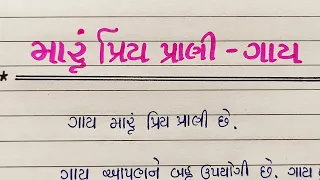 મારું પ્રિય પ્રાણી - ગાય
ગાય મારું પ્રિય પ્રાણી છે.
ગાય આપણને બહુ ઉપયોગી છે. ગાય